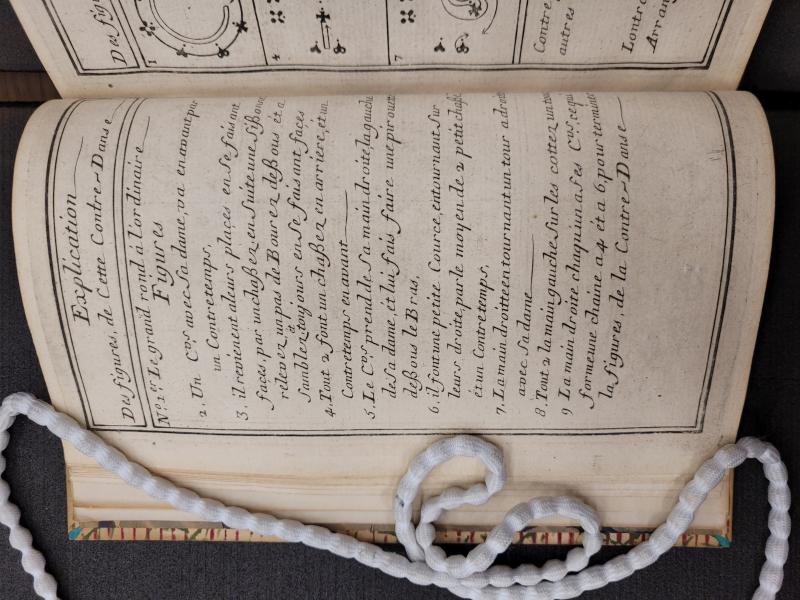 Explication
Des figures, de Cette Contre-Danse
N.º 1.er Le grand rond à L'ordinaire
Figures
2. Un C.vr avec Sa dame, va en avant par
un Contretemps,
3. il revienent a leurs places en Se faisant
faces, par un chaßez en Suite une Sißonne
relevez, un pas de Bourez deßous et a
Samblez, toujours en Se faisant faces
4. Tout 2 font un chaßez en arriere, et un
Contretemps en avant
5. Le C.vr prend de Sa main droite, la gauche
de Sa dame, et lui fais faire une pirouette
deßous le Bras,
6. il font une petite Cource, en tournant Sur
leurs droite, par le moyen de 2 petit chaßé
et un Contretemps,
7. La main droitte en tournant un tour a droit
avec Sa dame
8. Tout 2 la main gauche Sur les cottez un tour
9 La main droite chaquin a Ses C.vr, ce qui
forme une chaine a 4 et a 6, pour terminer
la figures, de la Contre-Danse
Des figu
1
4
7
Contre
autres
Lontre
Arran